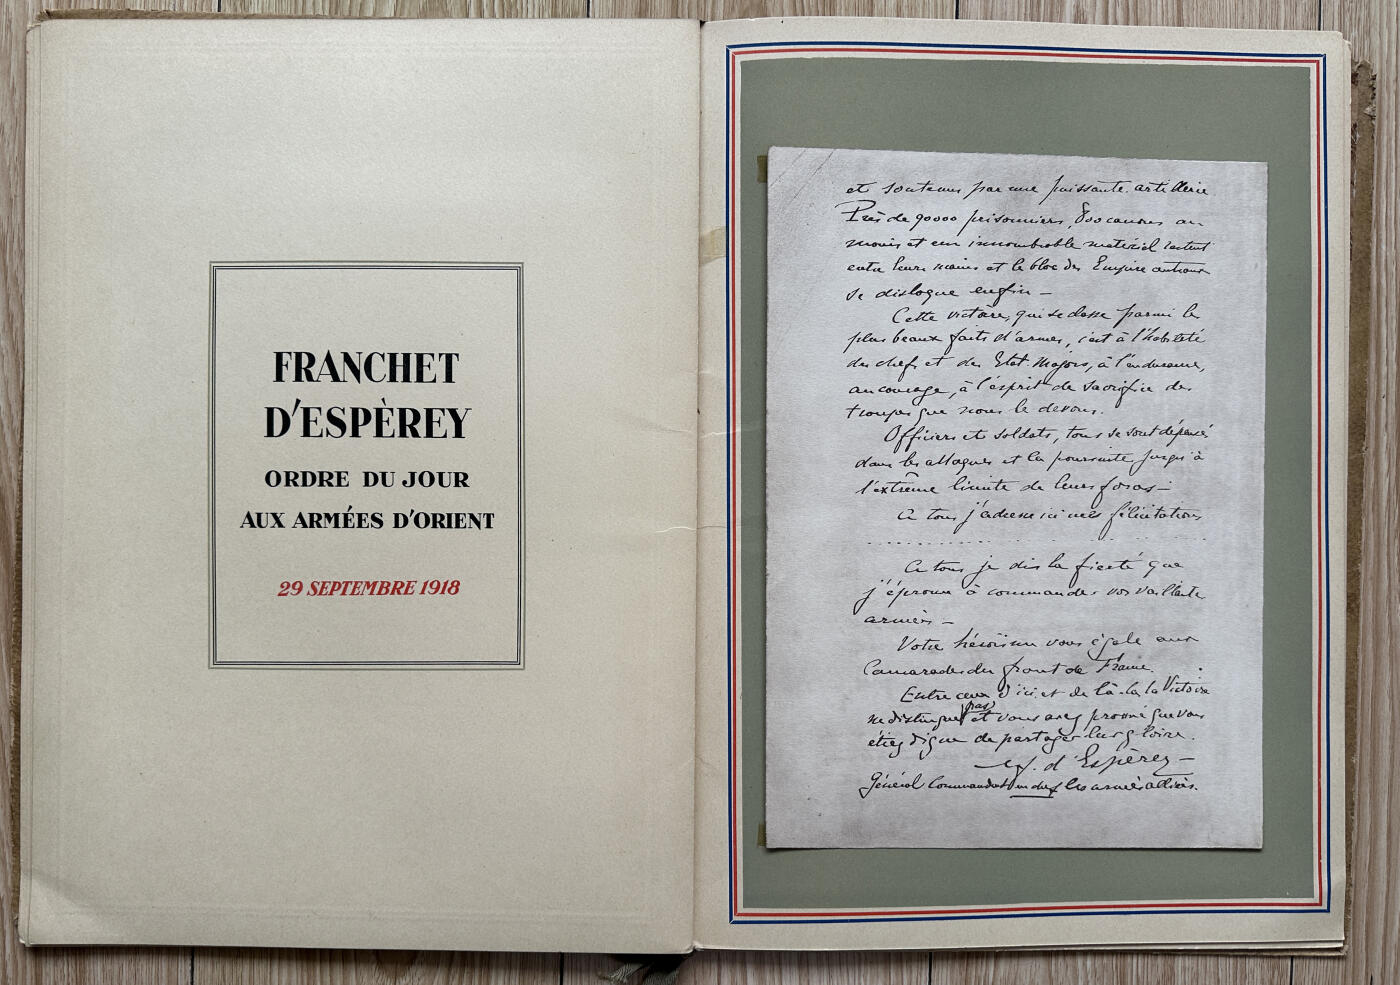 FRANCHET
D'ESPÈREY
ORDRE DU JOUR
AUX ARMÉES D'ORIENT
29 SEPTEMBRE 1918
et soutenus par une puissante artillerie
Près de 90000 prisonniers, 800 canons au
moins et un innombrable matériel restent
entre leurs mains et le bloc des Empires centraux
se disloque enfin —
Cette victoire, qui se classe parmi les
plus beaux faits d'armes, c'est à l'habileté
des chefs et des Etat Majors, à l'endurance,
au courage, à l'esprit de sacrifice des
troupes que nous le devons.
Officiers et soldats, tous se sont dépensés
dans les attaques et la poursuite jusqu'à
l'extrême limite de leurs forces —
A tous j'adresse ici mes félicitations
A tous je dis la fierté que
j'éprouve à commander vos vaillantes
armées —
Votre héroïsme vous égale aux
Camarades du front de France.
Entre ceux d'ici et de là-bas la Victoire
ne distingue pas et vous avez prouvé que vous
étiez digne de partager leur gloire.
f. d'Espèrey —
Général Commandant en chef les armées alliées.